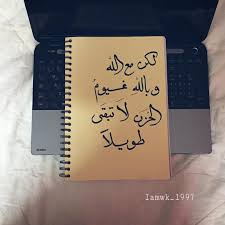 كن مع الله
وبالله غيومُ
الحزن لا تبقى
طويلاً
Iamwk_1997